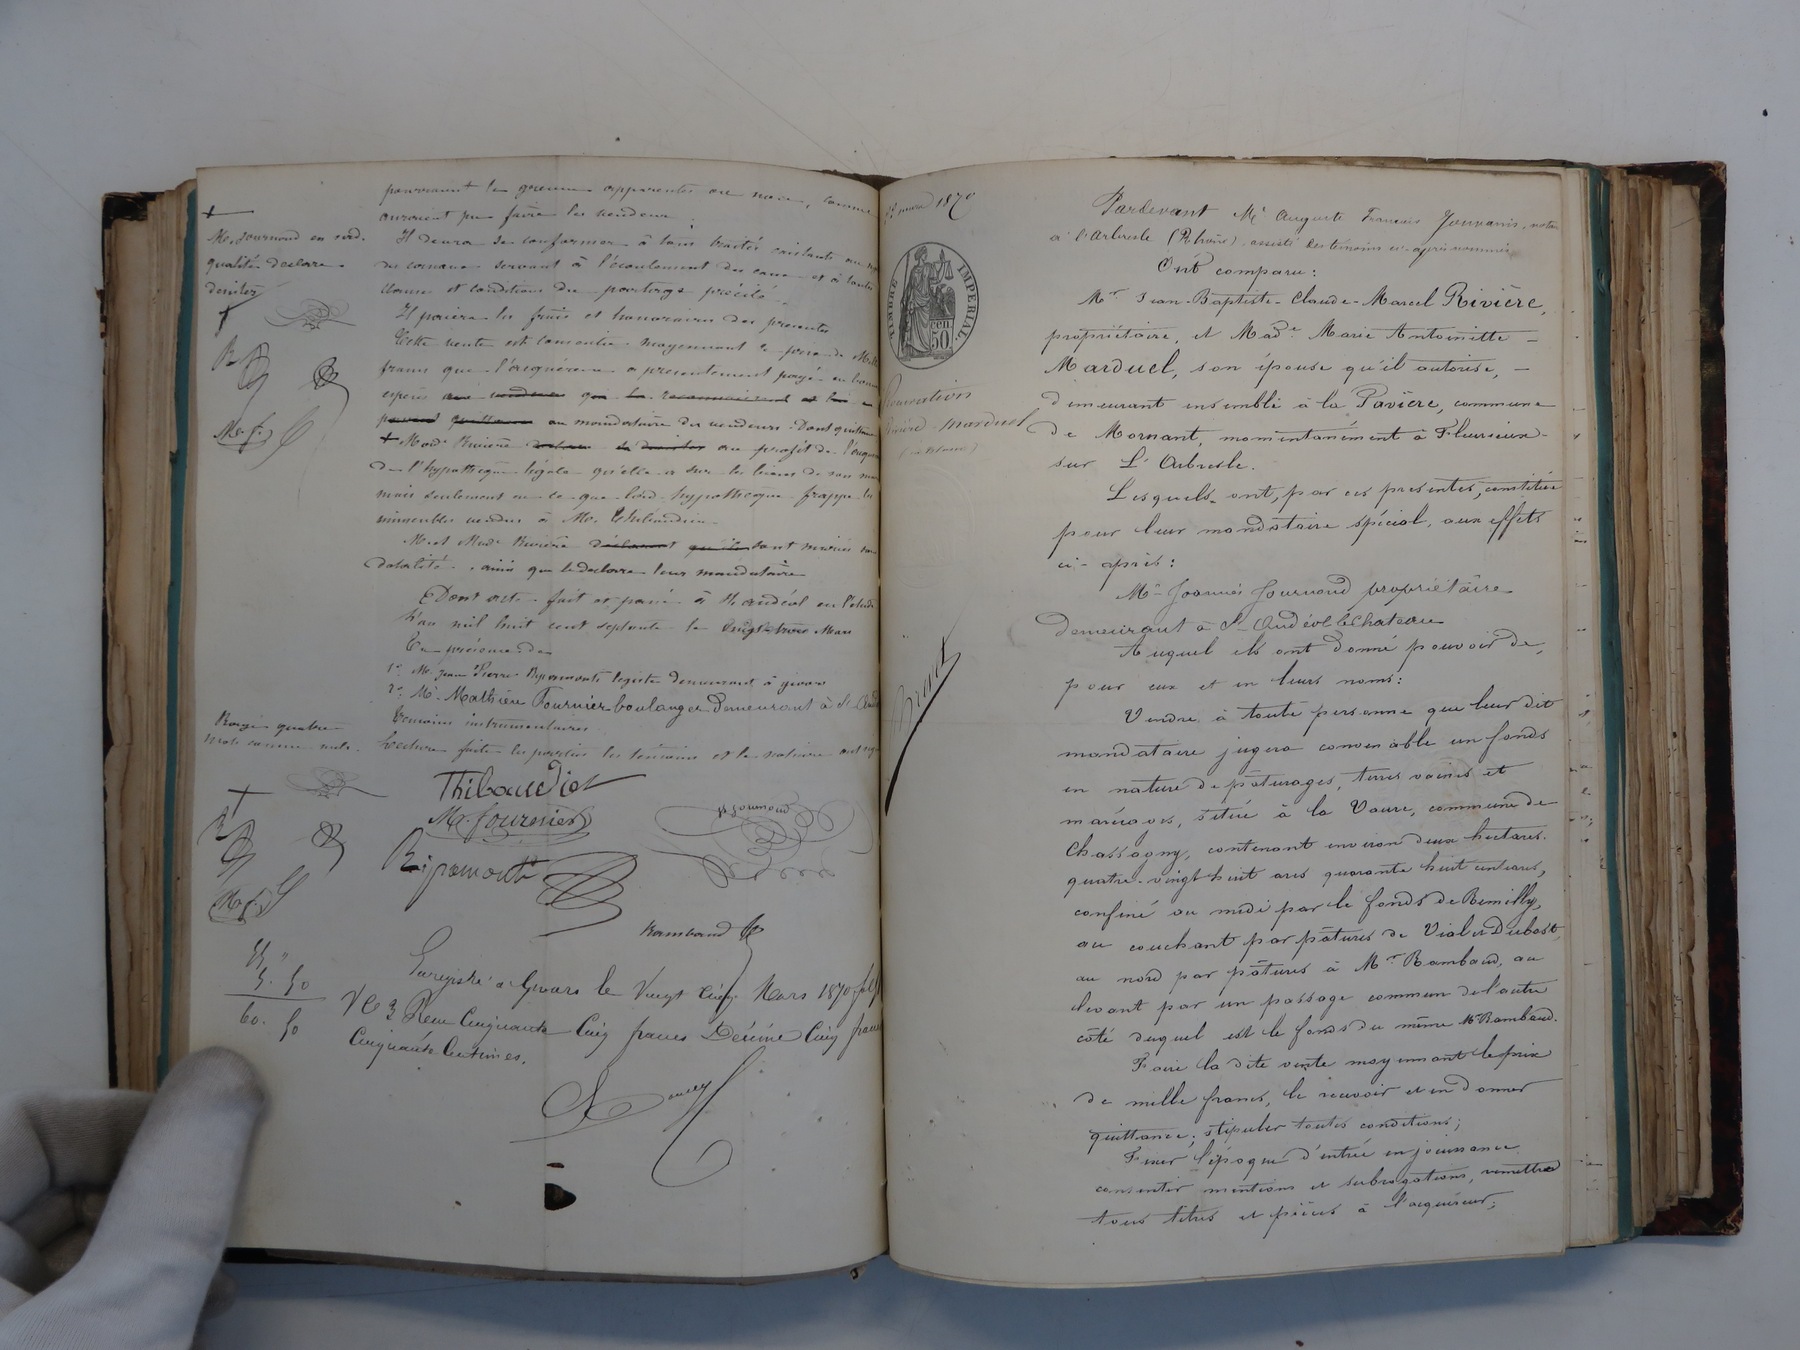 pourraient le grever apparentes ou non, comme
auraient pu faire les vendeurs.
Il devra se conformer à tous traités existants ou
des canaux servant à l'écoulement des eaux et à toutes
clauses et conditions du partage précité.
Il paiera les frais et honoraires des présentes
Cette vente est consentie moyennant le prix de Mille
francs que l'acquéreur a présentement payés en bonnes
espèces aux vendeurs que le reconnaissent et lui en
passent quittance au mandataire des vendeurs. Dont quittance
+ Made Rivière au profit de l'acquéreur
de l'hypothèque légale qu'elle a sur les biens de son mari
mais seulement en ce que lad. hypothèque frappe les
immeubles vendus à Mr. Thibaudier
M. et Made Rivière déclarent qu'ils sont mariés sous
dotalité, ainsi que le déclare leur mandataire
Dont acte fait et passé à St andéol en l'étude
L'an mil huit cent septante le vingt-trois Mars
En présence de
1° Mr. Jean Pierre Ripamonti demeurant à givors
2° Mr. Mathieu Fournier boulanger demeurant à St
témoins instrumentaires
Lecture faite les parties les témoins et le notaire ont
+
Mr. Journoud en sad.
qualité déclare
désister
+
R
M. f.
Rayé quatre
mots comme nuls.
Thibaudier
M. fournier
Journoud
Ripamonti
M. f.
Rambaud
Enregistré à Givors le Vingt cinq Mars 1870 fol
Vo C 3 Reçu Cinquante Cinq francs Décime Cinq francs
Cinquante Centimes.
55 "
5. 50
60. 50
mars 1870
TIMBRE IMPERIAL.
50 cen.
Procuration
Rivière-Marduel
Brevet
Pardevant Me Auguste François Jouvanis, notaire
à l'Arbresle (Rhône), assisté des témoins ci-après nommés
Ont comparu:
Mr Jean-Baptiste-Claude-Marcel Rivière,
propriétaire, et Made Marie Antoinette
Marduel, son épouse qu'il autorise, —
demeurant ensemble à la Pavière, commune
de Mornant, momentanément à Fleurieux-
sur L'Arbresle.
Lesquels ont, par ces présentes, constitué
pour leur mandataire spécial, aux effets
ci-après:
Mr Joannès Journoud propriétaire
demeurant à St Andéol le Château
Auquel ils ont donné pouvoir de,
pour eux et en leurs noms:
Vendre à toute personne que leur dit
mandataire jugera convenable un fonds
en nature de pâturages, terres vaines et
marécages, situé à la Vaure, commune de
Chassagny, contenant environ deux hectares.
quatre-vingt huit ares quarante huit centiares,
confiné au midi par le fonds de Remilly,
au couchant par pâtures de Vial et Dubost,
au nord par pâtures à Mr Rambaud, au
levant par un passage commun de l'autre
côté duquel est le fonds du même Mr Rambaud.
Faire la dite vente moyennant le prix
de mille francs, le recevoir et en donner
quittance; stipuler toutes conditions;
Fixer l'époque d'entrée en jouissance
consentir mentions et subrogations, remettre
tous titres et pièces à l'acquéreur;